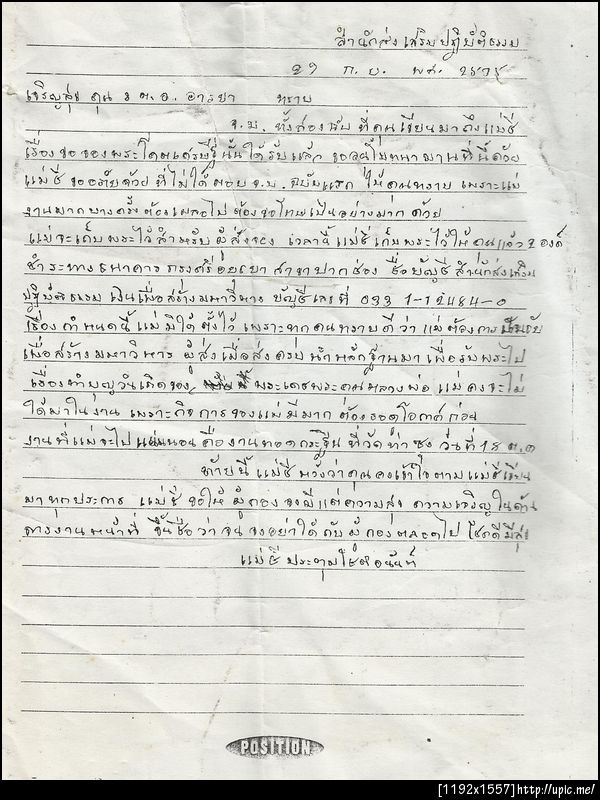 สำนักส่งเสริมปฏิบัติธรรม
๒๑ ก.ย. พศ. ๒๕๓๕
เจริญสุข คุณ ร.ต.อ. อารยา ทราบ
จ.ม. ทั้งสองฉบับ ที่คุณเขียนมาถึงแม่ชี
เรื่องขอจองพระโคตมเศรษฐีนั้นได้รับแล้ว ขออนุโมทนามา ณ ที่นี้ด้วย
แม่ชี ขออภัยด้วย ที่ไม่ได้ตอบ จ.ม. ฉบับแรก ให้คุณทราบ เพราะแม่
งานมากบางครั้ง ต้องเผลอไป ต้องขอโทษเป็นอย่างมาก ด้วย
แม่จะเก็บพระไว้สำหรับผู้สั่งจอง เวลานี้ แม่ชีเก็บพระไว้ให้คุณแล้ว ๑ องค์
ชำระทางธนาคาร กรุงศรีอยุธยา สาขาปากช่อง ชื่อบัญชี สำนักส่งเสริม
ปฏิบัติธรรม เงินเพื่อสร้างมหาวิหาร บัญชีเลขที่ 033 1-12484-0
เรื่องกำหนดนี้ แม่มิได้ตั้งไว้ เพราะทุกคนทราบดีว่า แม่ต้องการเงิน
เพื่อสร้างมหาวิหาร ผู้สั่งเมื่อส่งครบ นำหลักฐานมา เพื่อรับพระไป
เรื่องทำบุญวันเกิดของ พระเดชพระคุณหลวงพ่อ แม่คงจะไม่
ได้มาในงาน เพราะกิจการของแม่มีมาก ต้องรอดูโอกาศก่อน
งานที่แม่จะไป แน่นอน คืองานทอดกระฐิน ที่วัดท่าซุง วันที่ 18 ต.ค
ท้ายนี้ แม่ชี หวังว่าคุณคงเข้าใจตามแม่ชีเขียน
มาทุกประการ แม่ชี ขอให้ผู้กองจงมีแต่ความสุข ความเจริญในด้าน
การงาน หน้าที่ ขึ้นชื่อว่า จน จงอย่าได้ กับผู้กองตลอดไป โชคดีมีสุข
แม่ชี ประทุม โชติอนันท์
POSITION
[1192x1557]http://upic.me/